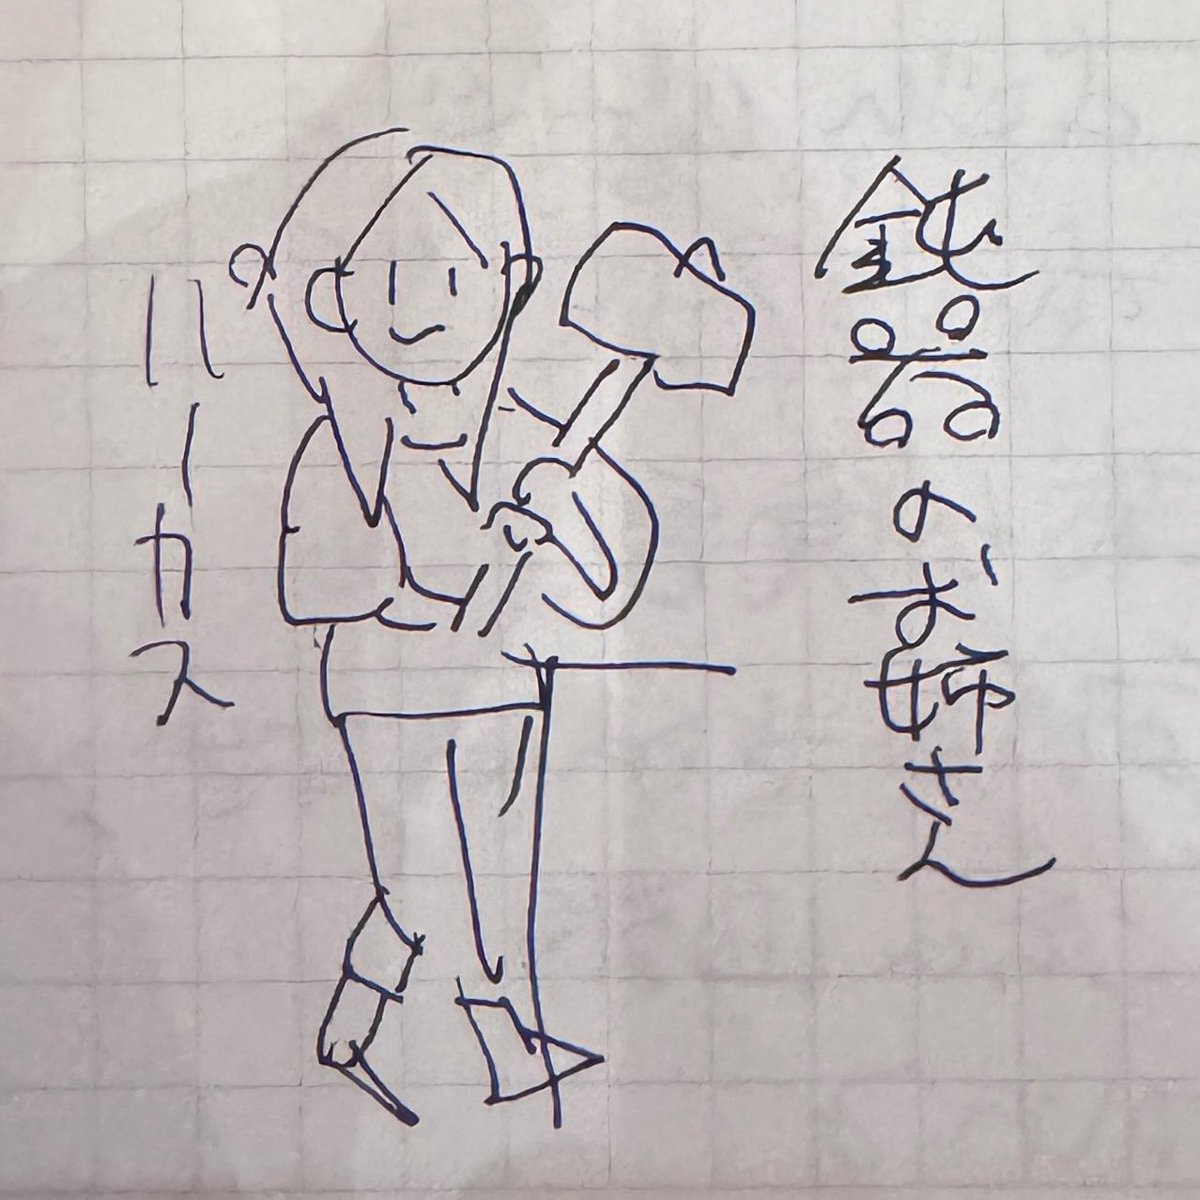 鈍器のお姉さん
パーカス